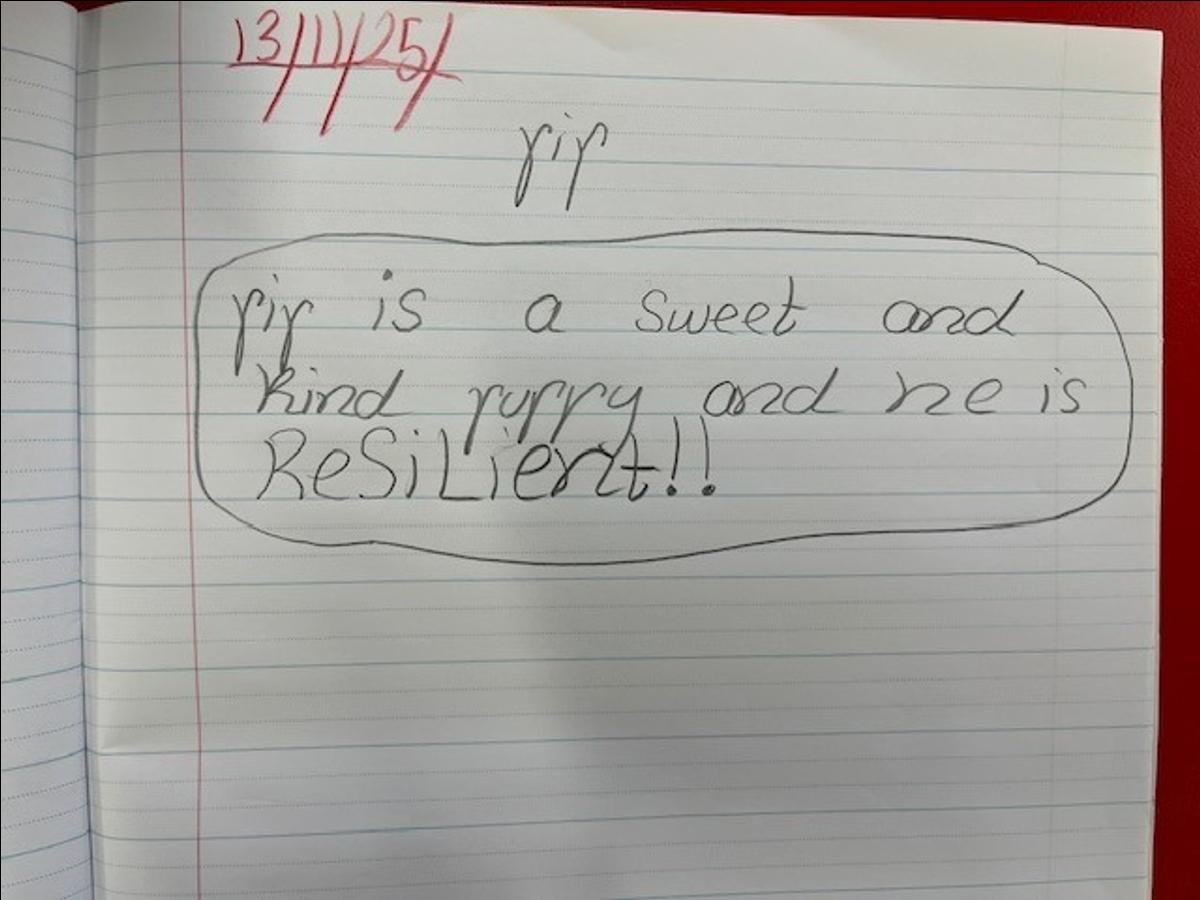 13/11/25/
pip
pip is a sweet and
kind puppy and he is
ReSiLient!!